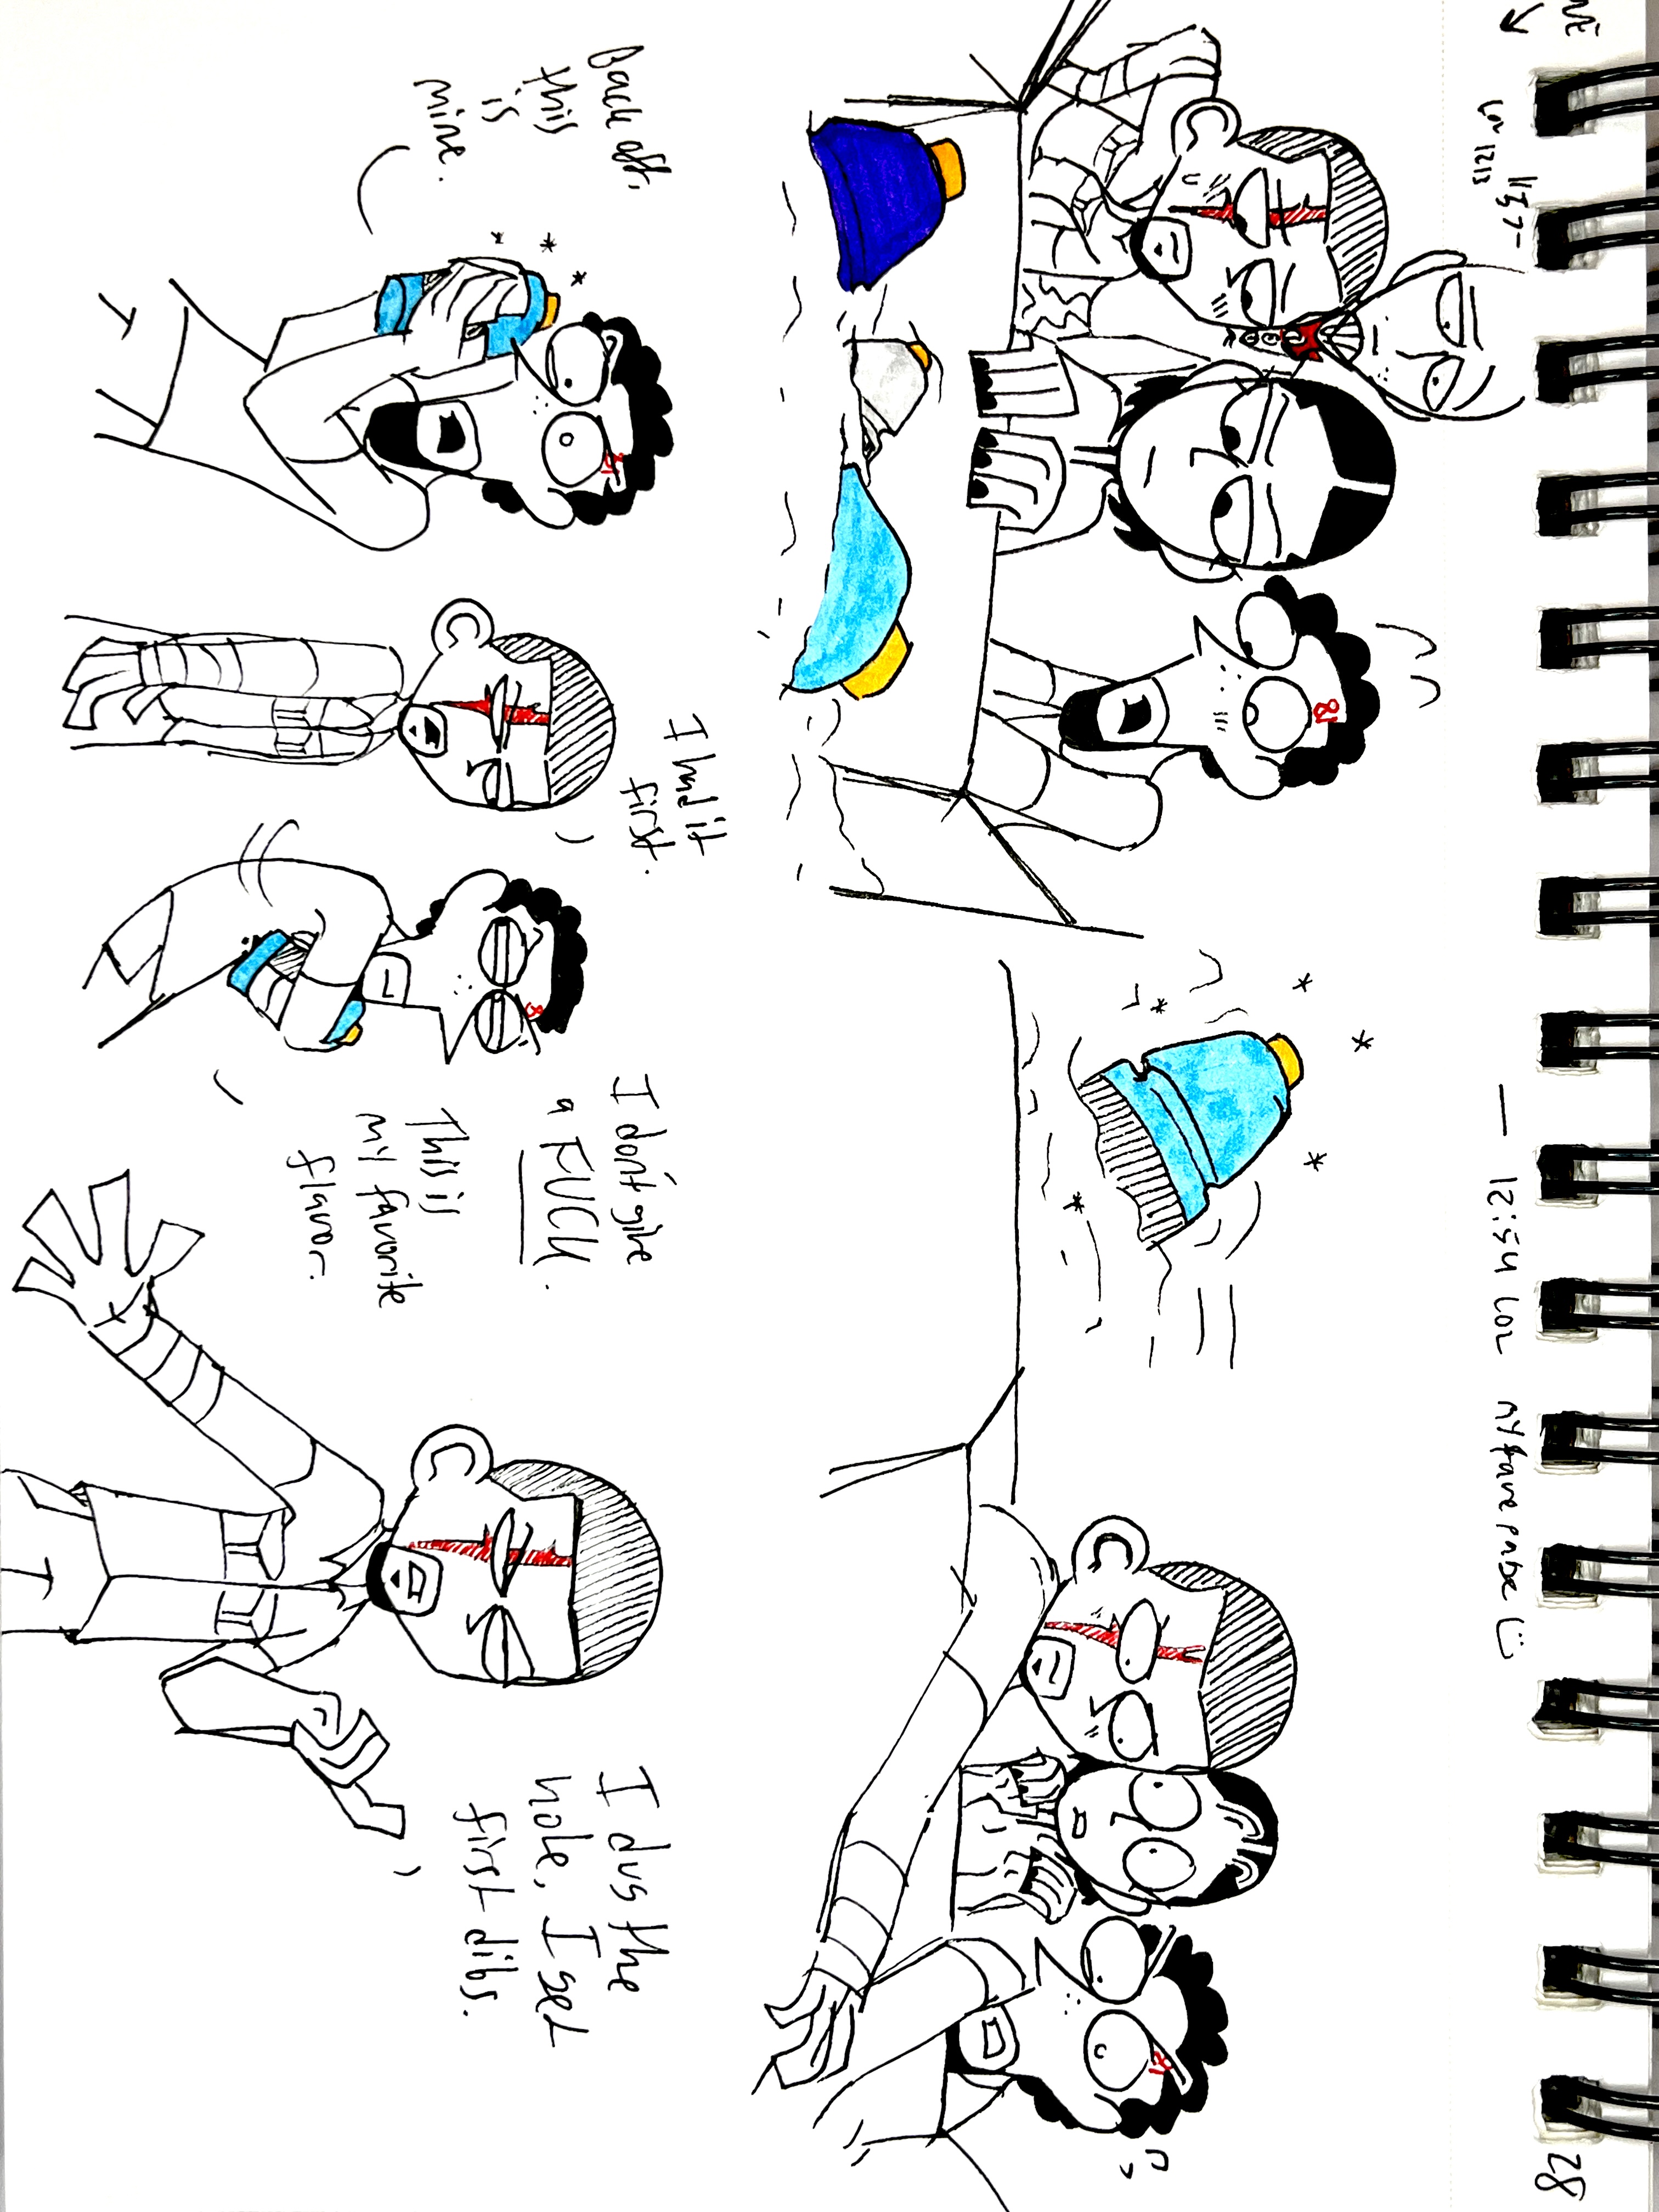 28
— 12:54 LOL my fave page
LOL 1213
1157 —
81
Back off,
this
is
mine.
I had it
first.
I don't give
a FUCK.
This is
my favorite
flavor.
I dug the
hole, I get
first dibs.